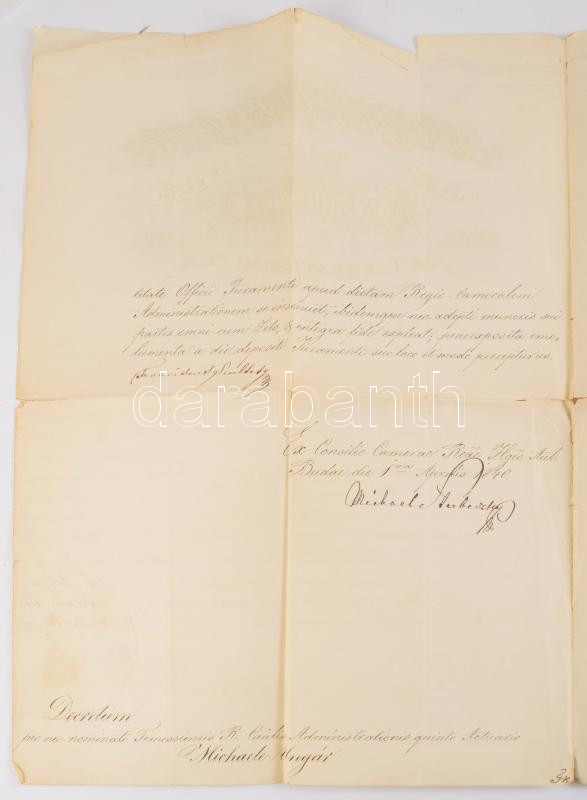 litate Officii Juramenti apud dictam Regio-Cameralem
Administrationem se insinuet, ibidemque neo adepti muneris sui
partes omni cum Zelo, & integra fide expleat; praeexposita emo-
lumenta a die depositi Juramenti suo loco et modo percepturus.
darabanth
Ex Consilio Camerae Regiae Hgco Aul.
Budae die 1ma Aprilis 1840.
Michael
Decretum
pro neo nominato Temessiensis R. Cqālis Administrationis quinto Actuario
Michaele Ungár